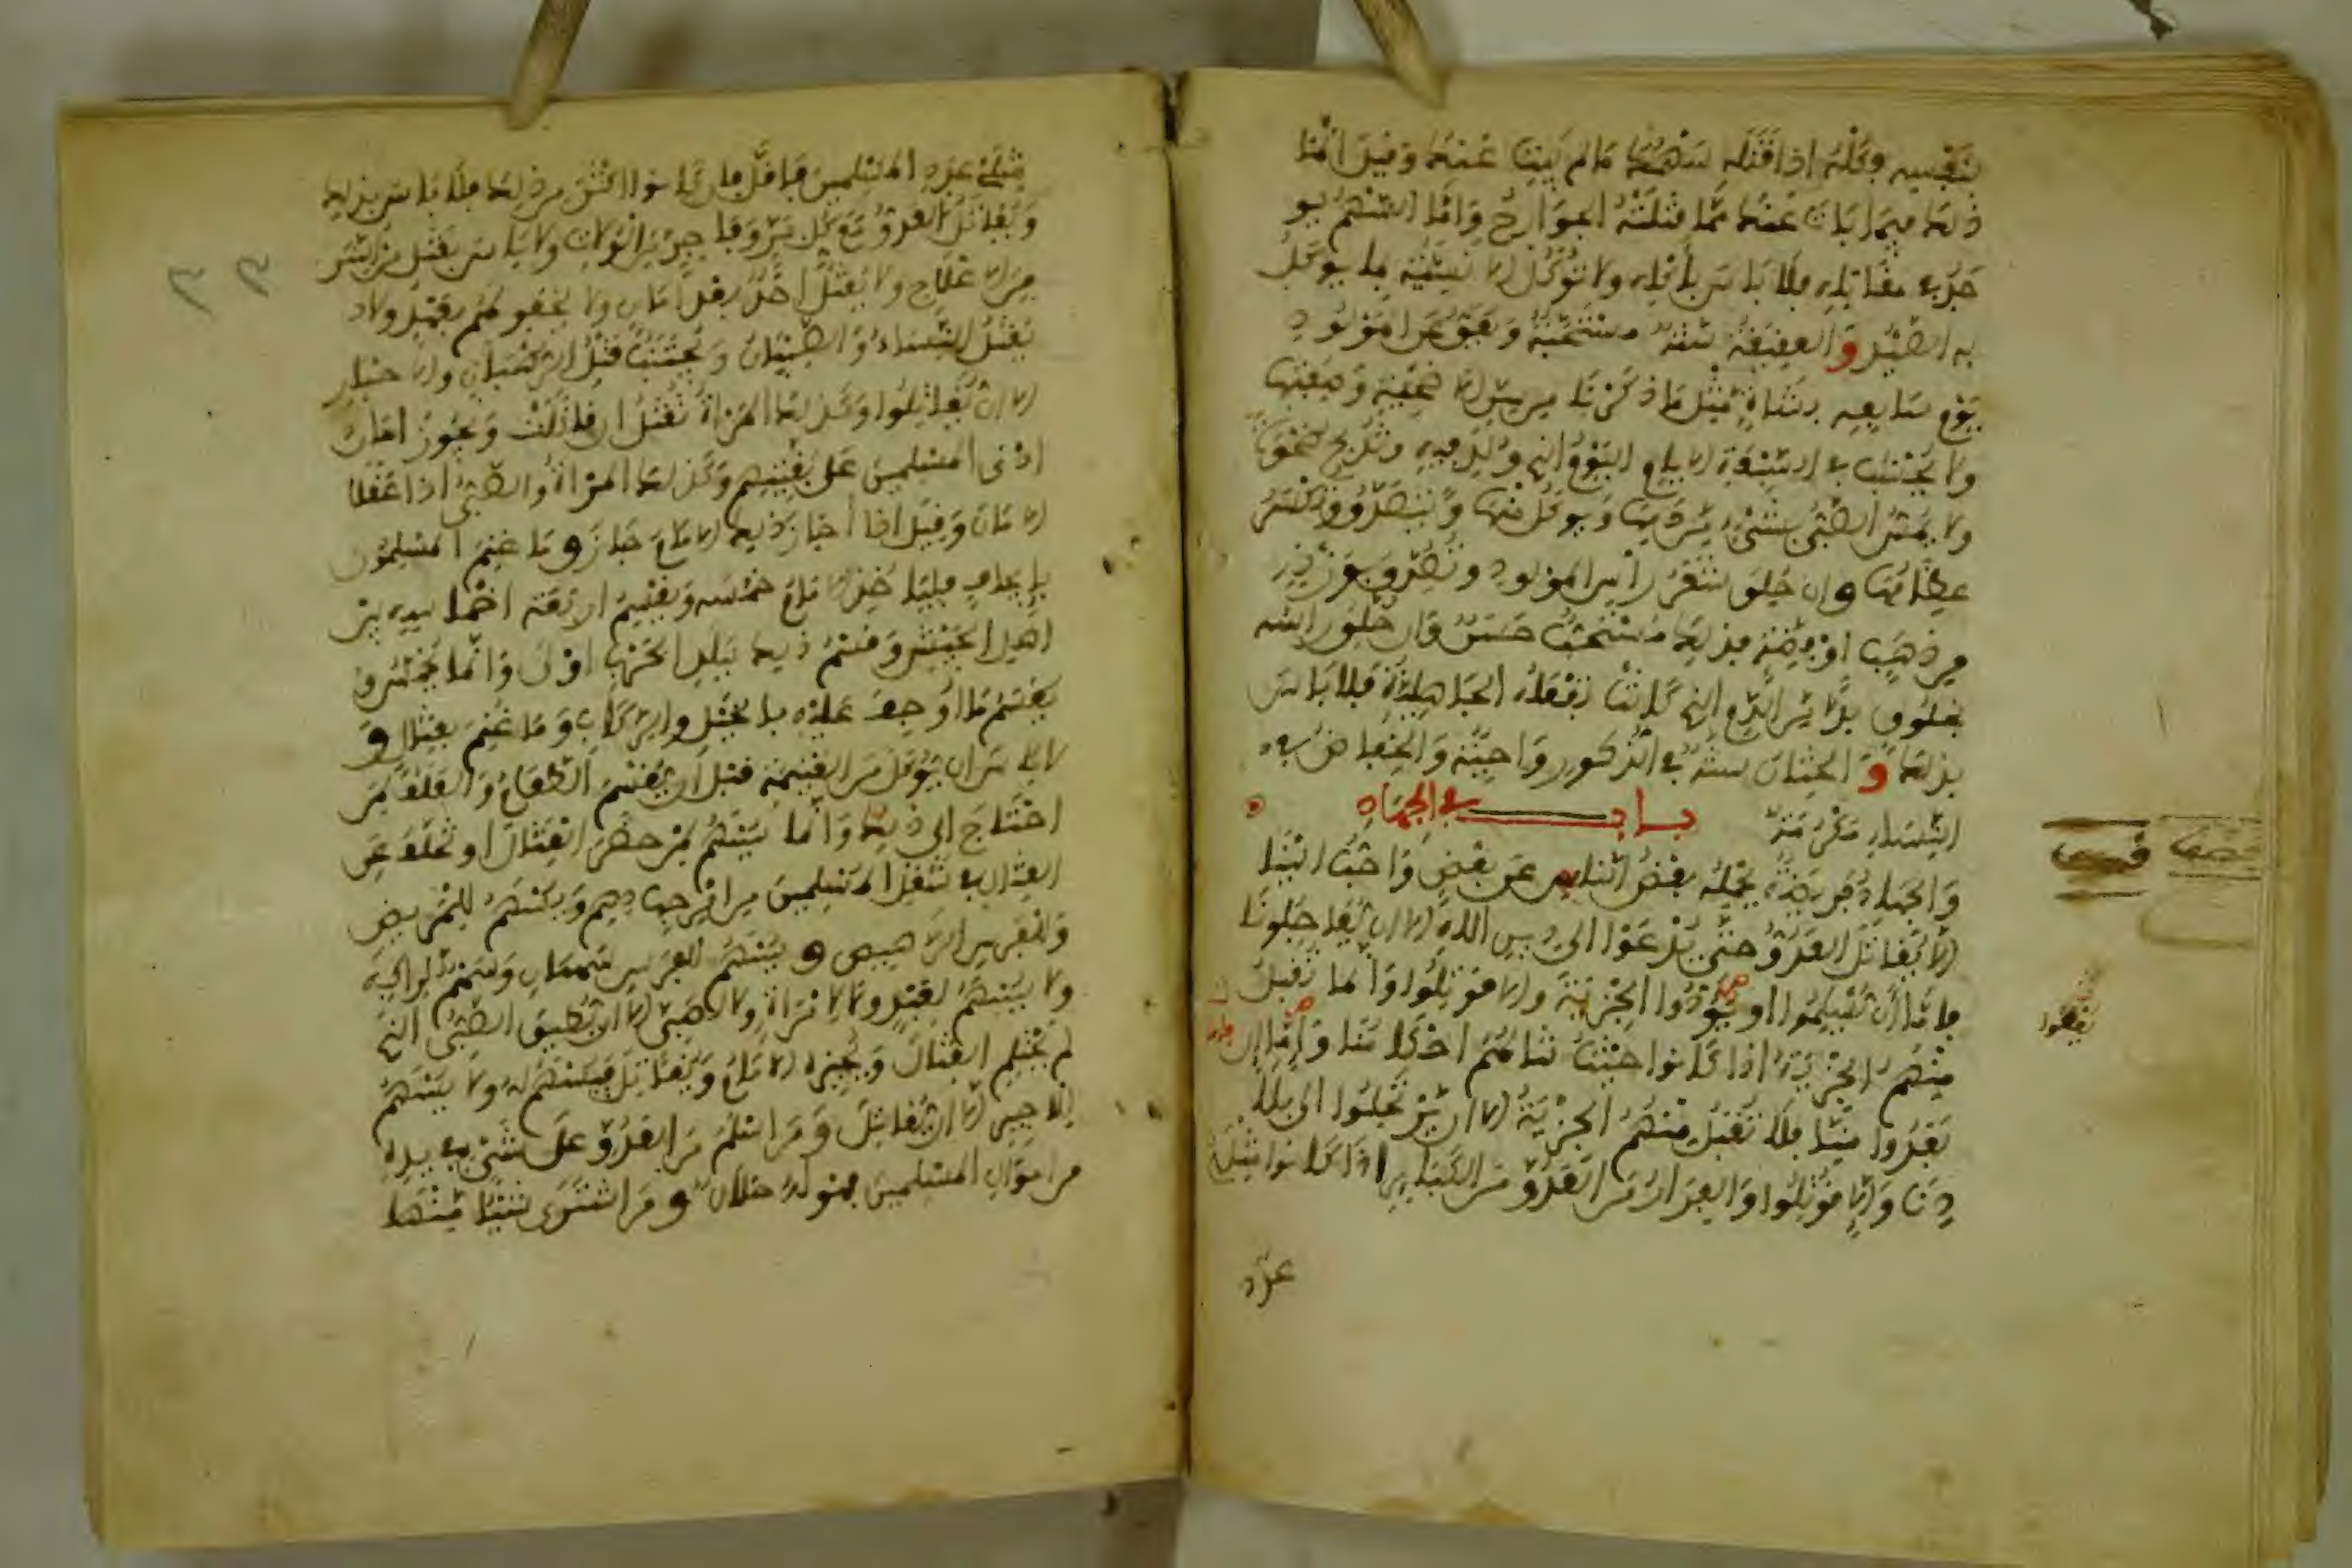 بنفسه وكله اذا قتله سهمك ما لم يبت عنك وقيل انما
ذلك فيما بات عنك مما قتلته الجوارح واما السهم يو
جد في مقاتله فلا باس باكله ولا تؤكل الانسية بما يوكل
به الصيد و العقيقة سنة مستحبة ويعق عن المولود
يوم سابعه بشاة مثل ما ذكرنا من سن الاضحية وصفتها
ولا يحسب في السبعة الايام اليوم الذي ولد فيه وتذبح ضحوة
ولا يمس الصبي بشيء من دمها ويوكل منها ويتصدق وتكسر
عظامها وان حلق شعر راس المولود وتصدق بوزنه
من ذهب او فضة فذلك مستحب حسن وان خلق راسه
بخلوق بدلا من الدم الذي كانت تفعله الجاهلية فلا باس
بذلك و الختان سنة في الذكور واجبة والخفاض في
النساء مكرمة باب في الجهاد
والجهاد فريضة يحمله بعض الناس عن بعض واحب الينا
الا يقاتل العدو حتى يدعوا الى دين الله الا ان يعاجلونا
فاما ان يسلموا او يؤدوا الجزية والا قوتلوا وانما تقبل
منهم الجزية اذا كانوا حيث تنالهم احكامنا واما ان
يبعدوا منا فلا تقبل منهم الجزية الا ان يرتحلوا الى بلا
دنا والا قوتلوا والفرار من العدو من الكبائر اذا كانوا مثلي
عدد
مثلي عدد المسلمين فاقل فان كانوا اكثر من ذلك فلا باس بذلك
ويقاتل العدو مع كل بر وفاجر من الولاة ولا باس بقتل من اسر
من الاعلاج ولا يقتل احد بعد امان ولا يخفر لهم بعهد ولا
يقتل النساء والصبيان ويجتنب قتل الرهبان والاحبار
الا ان يقاتلوا وكذلك المراة تقتل ان قاتلت ويجوز امان
ادنى المسلمين على بقيتهم وكذلك المراة والصبي اذا عقلا
الامان وقيل اذا اجاز ذلك الامام جاز وما غنم المسلمون
بايجاف فلياخذ الامام خمسه ويقسم اربعة اخماسه بين
اهل الجيش وقسم ذلك ببلد الحرب اولى وانما يخمس و
يقسم ما اوجف عليه بالخيل والركاب وما غنم بقتال و
لا باس ان يوكل من الغنيمة قبل ان يقسم الطعام والعلف لمن
احتاج الى ذلك وانما يسهم لمن حضر القتال او تخلف عن
القتال في شغل المسلمين من امر جهادهم ويسهم للمريض
وللفرس الرهيص و يسهم للفرس سهمان وسهم لراكبه
ولا يسهم لعبد ولا لامراة ولا لصبي الا ان يطيق الصبي الذي
لم يحتلم القتال ويجيزه الامام ويقاتل فيسهم له ولا يسهم
للاجير الا ان يقاتل ومن اسلم من العدو على شيء في يده
من اموال المسلمين فهو له حلال و من اشترى شيئا منها